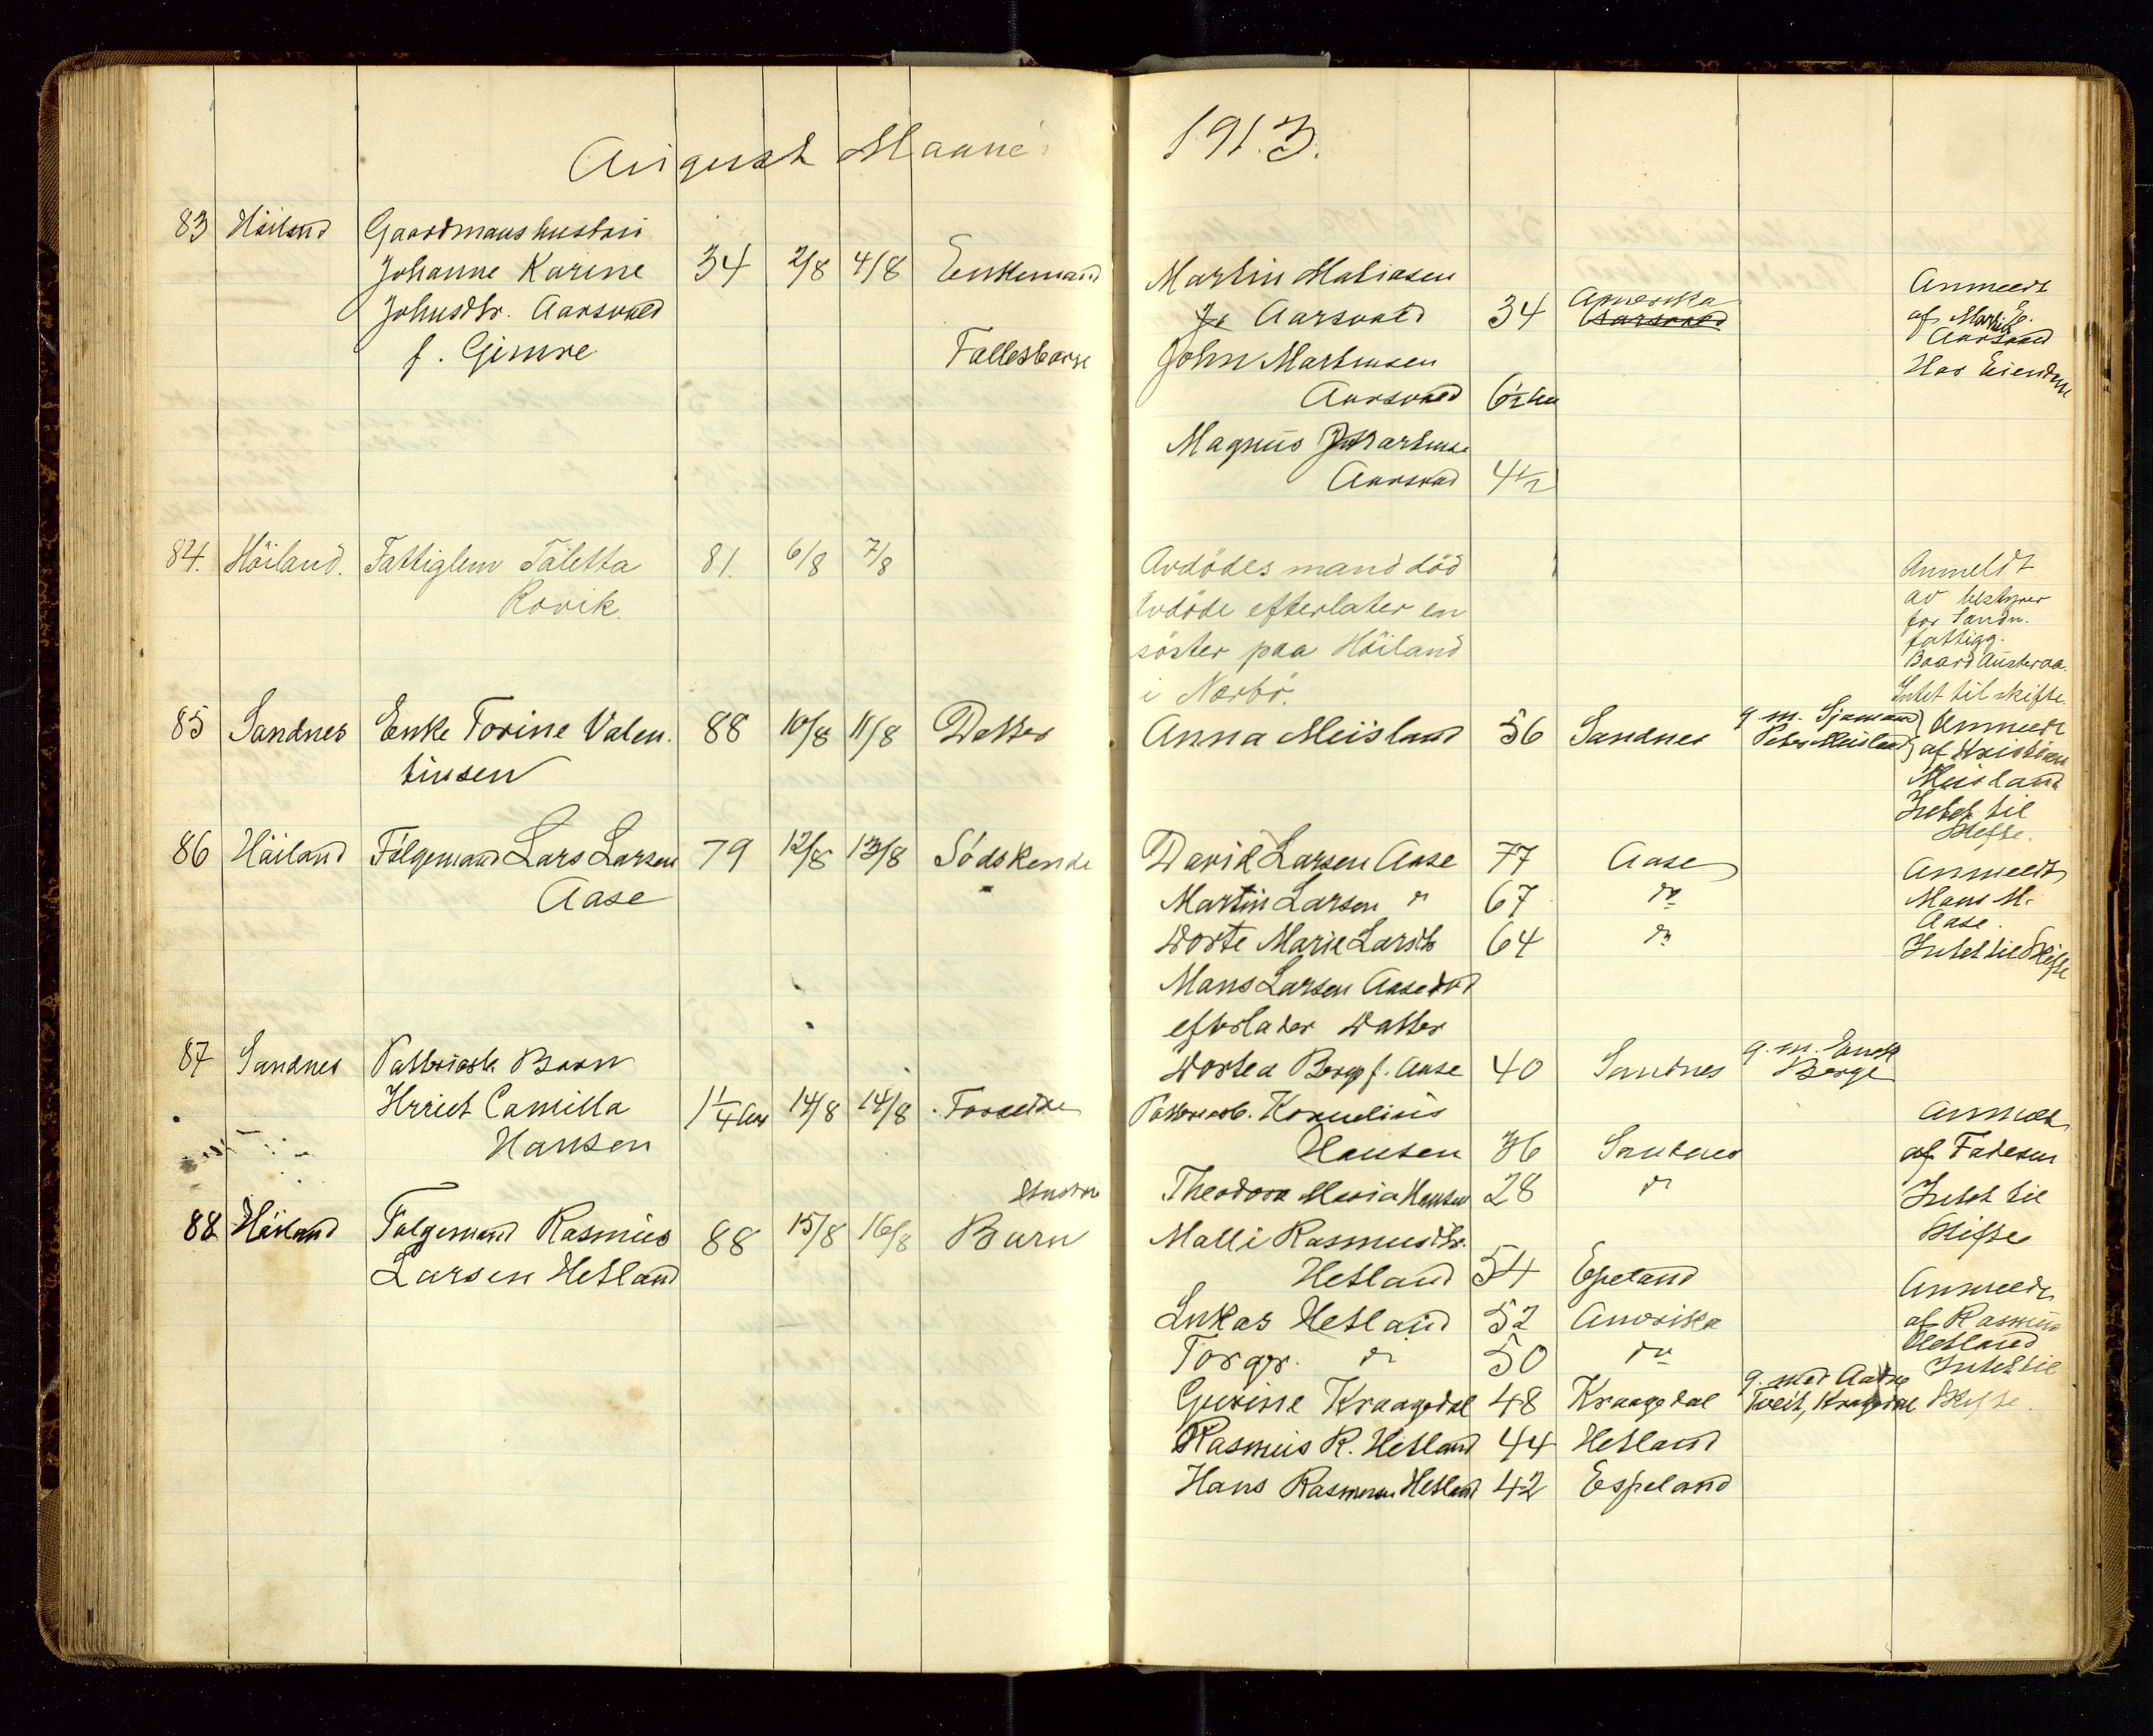 August Maane
1913.
83 Höiland Gaardmanshustru
Johanne Karine 34 2/8 4/8 Enkemand
Johnsdtr. Aarsvold
f. Gimre
Fællesbarn
Martin Matiasen
Aarsvold 34 Amerika Aarsvold
John Martinsen
Aarsvold 6½
Magnus Martinse
Aarsvold 4½
Anmeldt
af Martin
Aarsvold
Har Eiendom
84. Höiland. Fattiglem Taletta 81. 6/8 7/8
Rovik.
Avdödes mand död
Avdöde efterlater en
söster paa Höiland
i Nærbö.
Anmeldt
av bestyrer
for Sandn.
fattigg.
Baard Austeraa.
Intet til skifte.
85 Sandnes Enke Torine Valen. 88 10/8 11/8 Datter
tinsen
Anna Meisland 56 Sandnes g. m. Sjømand
Peter Meisland
Anmeldt
af Kristian
Meisland
Intet til
Skifte.
86 Höiland Fölgemand Lars Larsen 79 12/8 13/8 Södskende
Aase
David Larsen Aase 77 Aase
Martin Larsen " 67 do
Dorte Marie Larsdtr 64 do
Mans Larsen Aase död
efterlader Datter
Dortea Berge f. Aase 40 Sandnes g. m. Enok
Berge
Anmeldt
Mans M.
Aase.
Intet til Skifte
87 Sandnes Fabrikarb. Barn
Camilla 1¼ Aar 14/8 14/8 Forældre
Hansen
Fabrikarb. Kornelius
Hansen 36 Sandnes
Theodora Maria Hansen 28 do
Anmeldt
af Faderen
Intet til
Skifte
88 Höiland Følgemand Rasmus 88 15/8 16/8 Hustru
Børn
Larsen Hetland
Malli Rasmusdtr.
Hetland 54 Espeland
Lukas Hetland 52 Amerika
Torger. do 50 do
Gurine Kraagedal 48 Kraagedal g. med Aadne
Tveit, Kragedal
Rasmus R. Hetland 44 Hetland
Hans Rasmusen Hetland 42 Espeland
Anmeldt
af Rasmus
Hetland
Intet til
Skifte.